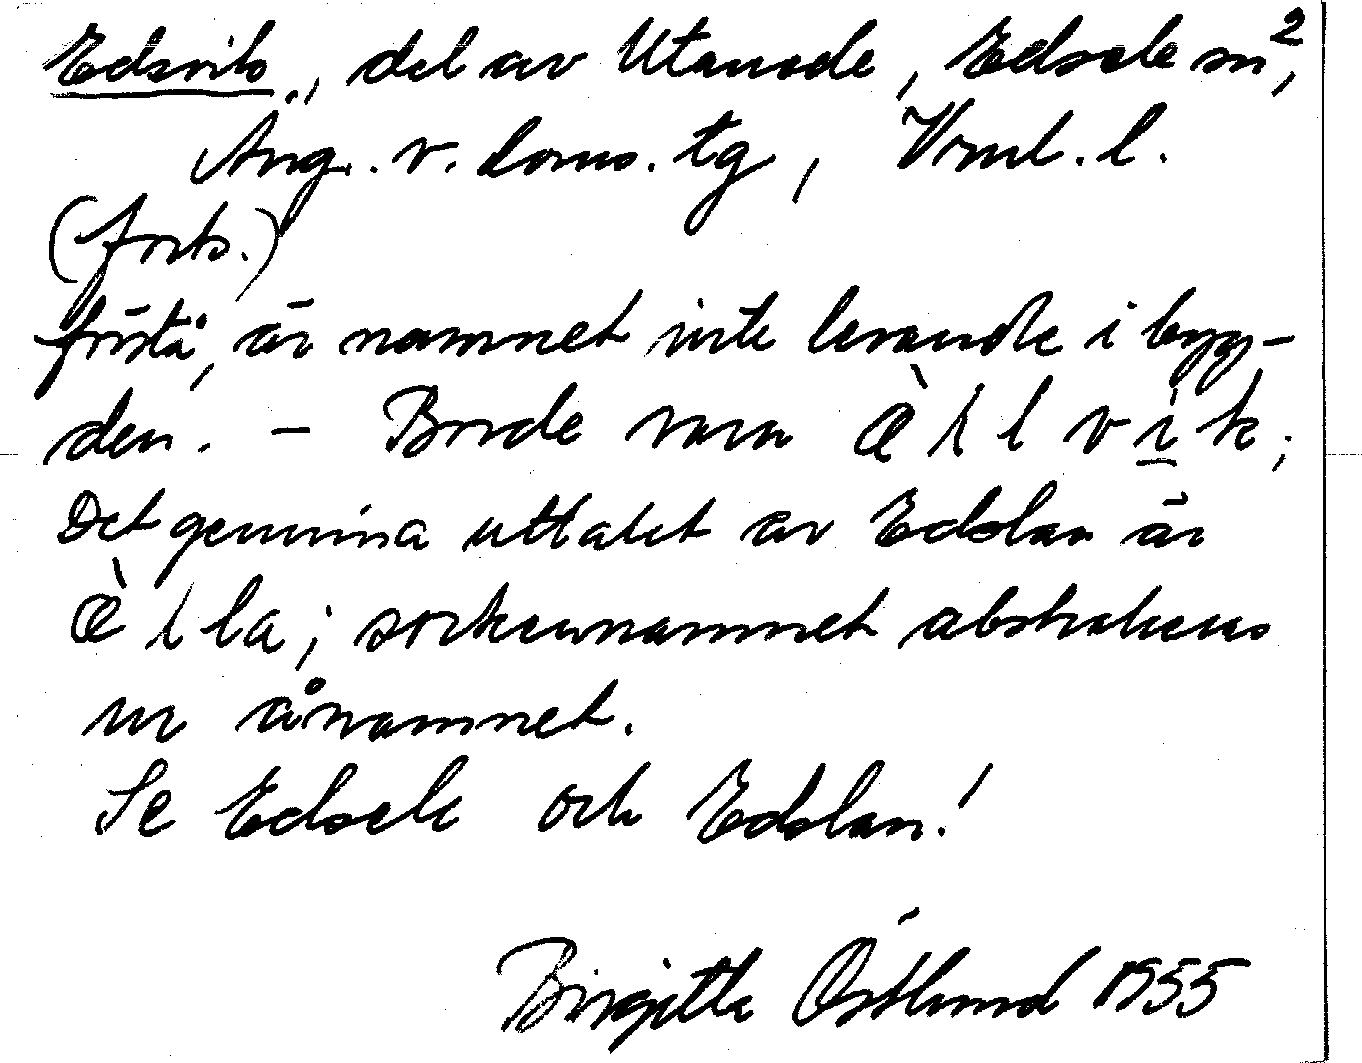 Edsvik, del av Utanede, Edsele sn²,
Ång. v. doms. tg, Vrnl. l.
(forts.)
förstå, är namnet inte levande i byg-
den. – Borde vara Æ̀llvik;
Det genuina uttalet av Edslan är
Æ̀lla; sockennamnet abstraheras
ur ånamnet.
Se Edsele och Edslan!
Birgitta Östlund 1955